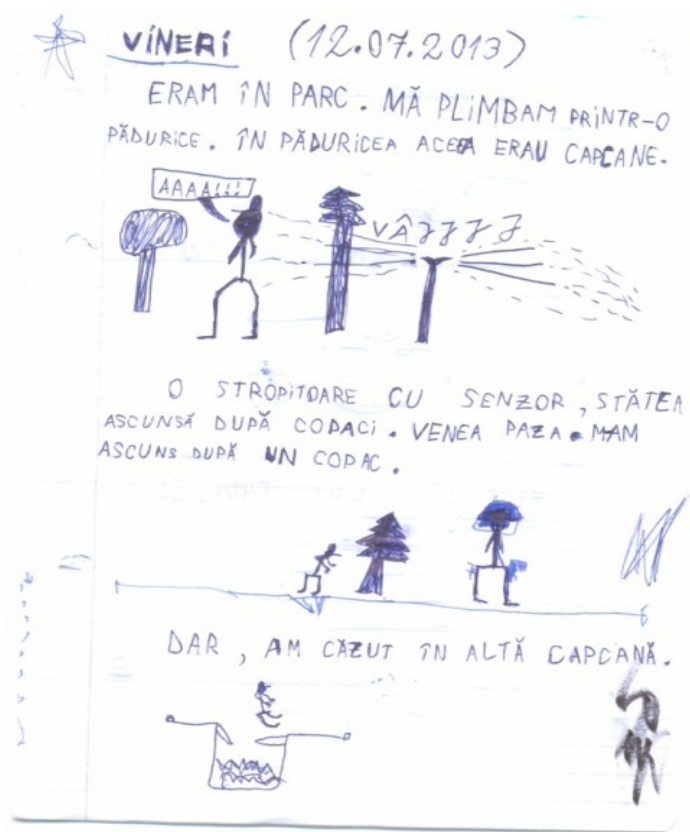 VINERI (12.07.2013)
ERAM ÎN PARC. MĂ PLIMBAM PRINTR-O
PĂDURICE. ÎN PĂDURICEA ACEEA ERAU CAPCANE.
AAAA!!!
VÂJJJJ
O STROPITOARE CU SENZOR, STĂTEA
ASCUNSĂ DUPĂ COPACI. VENEA PAZA. MAM
ASCUNS DUPĂ UN COPAC.
DAR, AM CĂZUT ÎN ALTĂ CAPCANĂ.